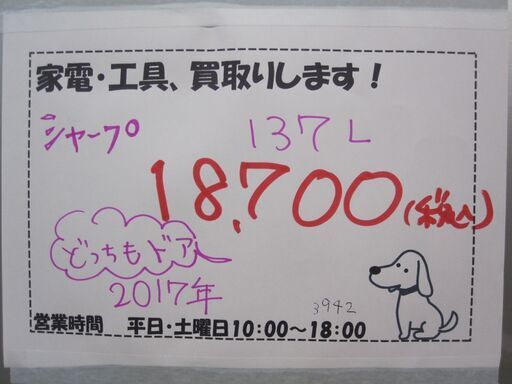 家電・工具、買取りします！
シャープ 137L
18,700(税込)
どっちもドア
2017年
3942
営業時間 平日・土曜日10:00～18:00